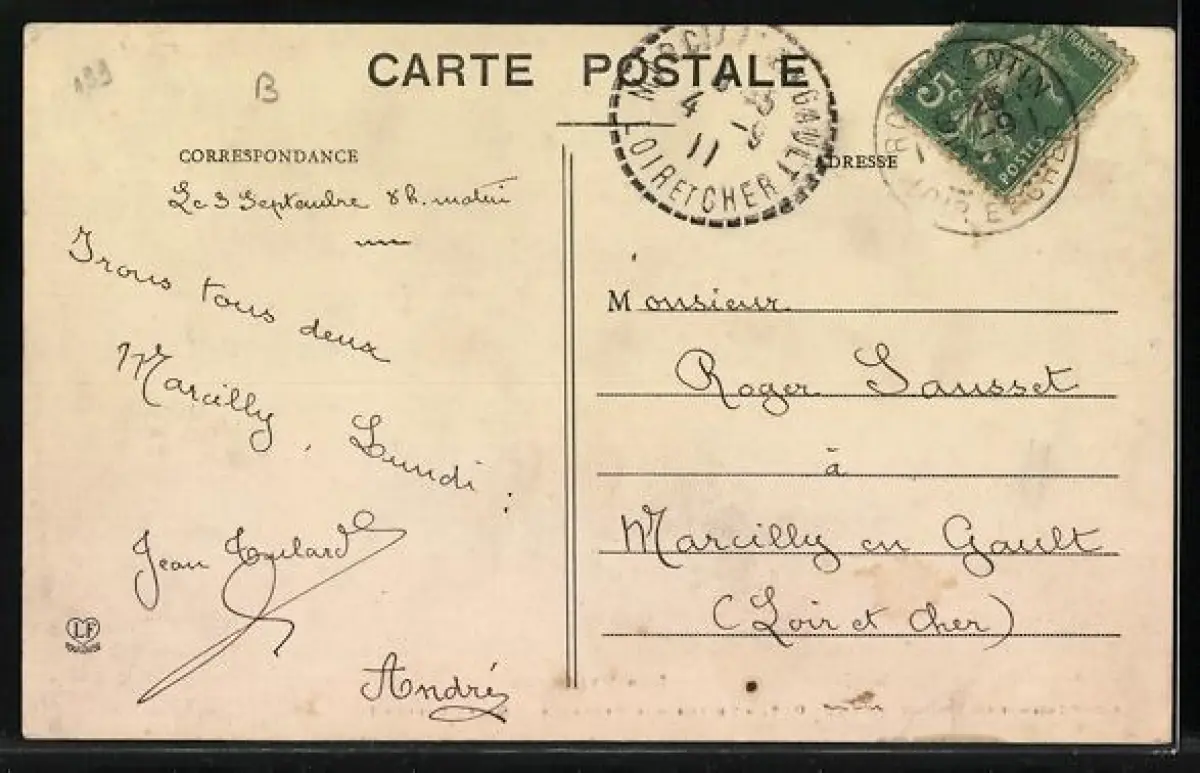 199
B
CARTE POSTALE
CORRESPONDANCE
ADRESSE
Le 3 Septembre 8h. matin
Irons tous deux
Marcilly, Lundi.
Jean Toulard
André
LF
Monsieur
Roger Sausset
à
Marcilly en Gault
(Loir et Cher)
GAULT
LOIR ET CHER
4
11
FRANÇAISE
5c
POSTES
LOIR ET CHER